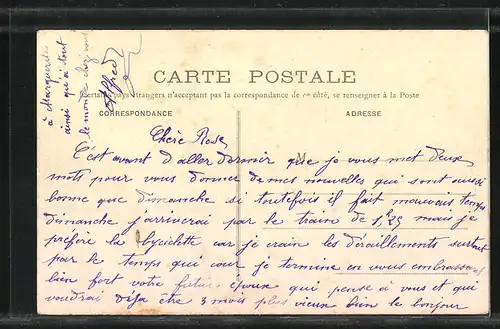 CARTE POSTALE
Certains pays étrangers n'acceptant pas la correspondance de ce côté, se renseigner à la Poste
CORRESPONDANCE
ADRESSE
Chère Rose
C'est avant d'aller dormir que je vous met deux
mots pour vous donner de mes nouvelles qui sont aussi
bonne que dimanche si toutefois il fait mauvais temps
dimanche j'arriverai par le train de 1h25 mais je
préfère la bycilette car je crain les déraillements surtout
par le temps qui cour je termine en vous embrassant
bien fort votre futur époux qui pense a vous et qui
voudrai déja être 3 mois plus vieux bien le bonjour
à Marguerite
ainsi qu'à tout
le monde chez vous
Alfred